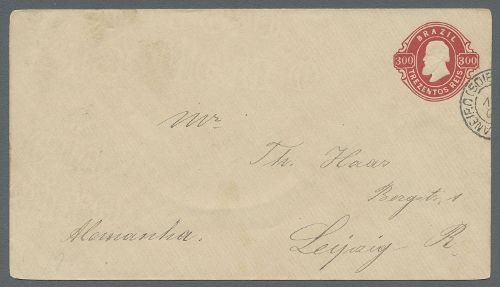 BRAZIL
300 300
TREZENTOS REIS
ANEIRO
Mr.
Th. Haar
Alemanha.
Leipzig R.